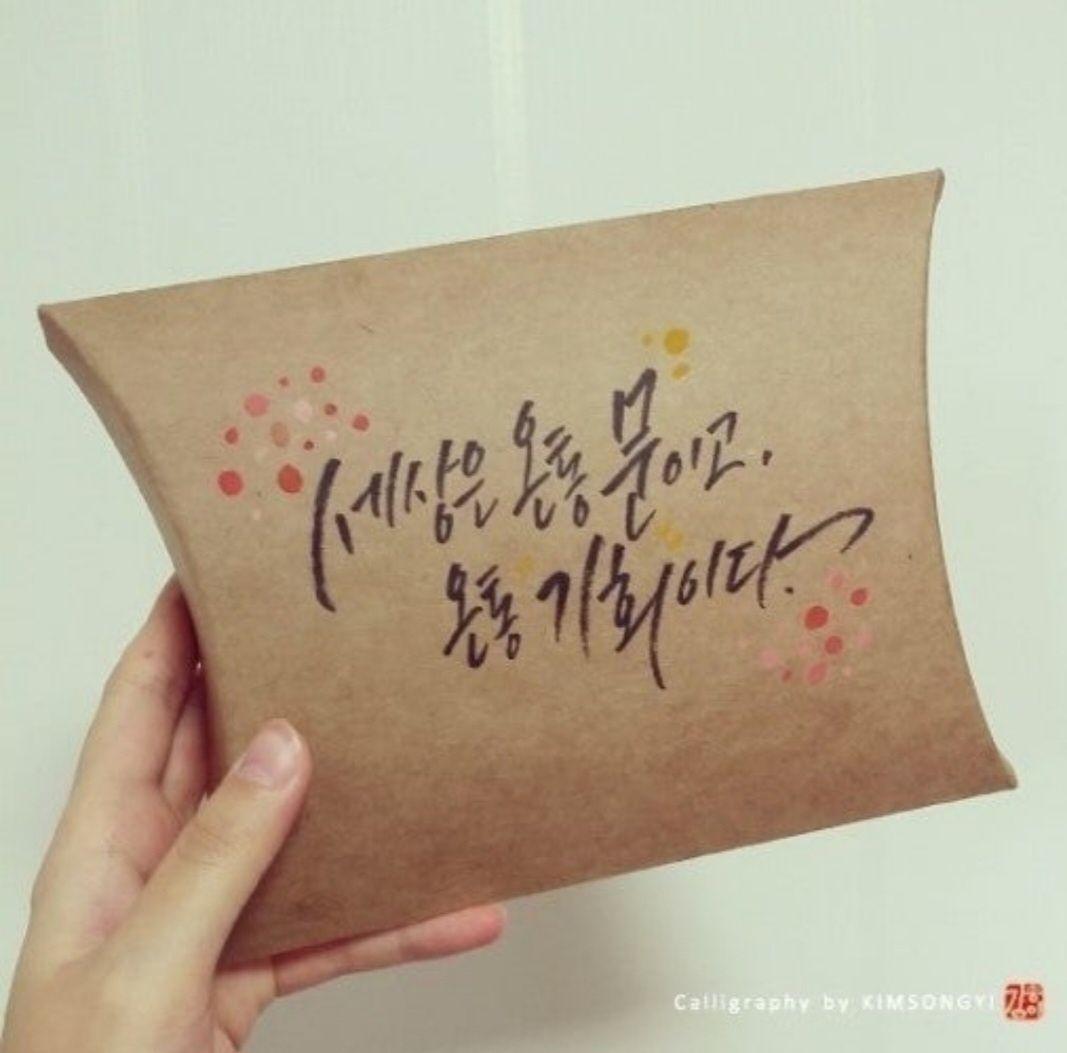 세상은 온통 문이고,
온통 기회이다.
Calligraphy by KIMSONGYI